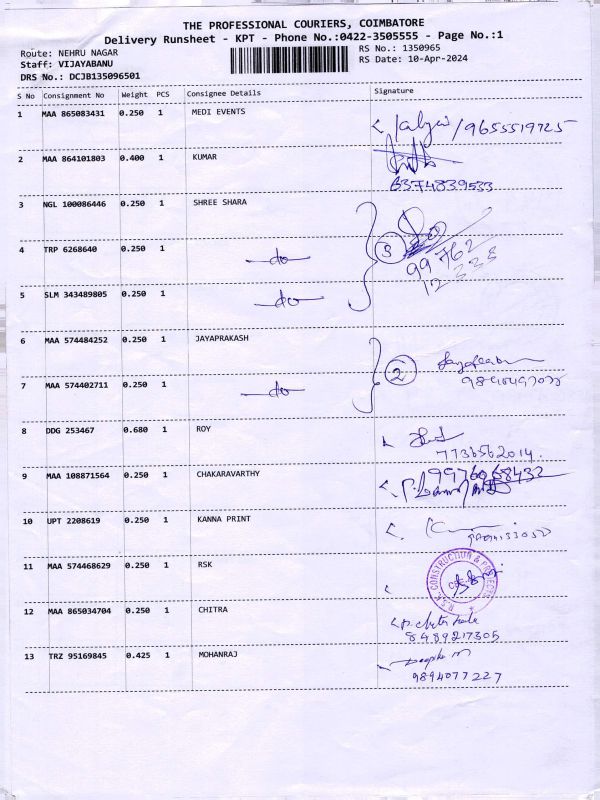 THE PROFESSIONAL COURIERS, COIMBATORE
Delivery Runsheet - KPT - Phone No.:0422-3505555 - Page No.:1
Route: NEHRU NAGAR
RS No.: 1350965
Staff: VIJAYABANU
RS Date: 10-Apr-2024
DRS No.: DCJB135096501
S No Consignment No Weight PCS Consignee Details Signature
1 MAA 865083431 0.250 1 MEDI EVENTS /9655519725
2 MAA 864101803 0.400 1 KUMAR
6374839533
3 NGL 100086446 0.250 1 SHREE SHARA
4 TRP 6268640 0.250 1 do 3 99762
12333
5 SLM 343489805 0.250 1 do
6 MAA 574484252 0.250 1 JAYAPRAKASH
7 MAA 574402711 0.250 1 do 2
8 DDG 253467 0.680 1 ROY
7736562014.
9 MAA 108871564 0.250 1 CHAKARAVARTHY 9976068432
10 UPT 2208619 0.250 1 KANNA PRINT
11 MAA 574468629 0.250 1 RSK R.S.K. CONSTRUCTION & PROJECTS
12 MAA 865034704 0.250 1 CHITRA
8489217305
13 TRZ 95169845 0.425 1 MOHANRAJ Deepika M
9894077227